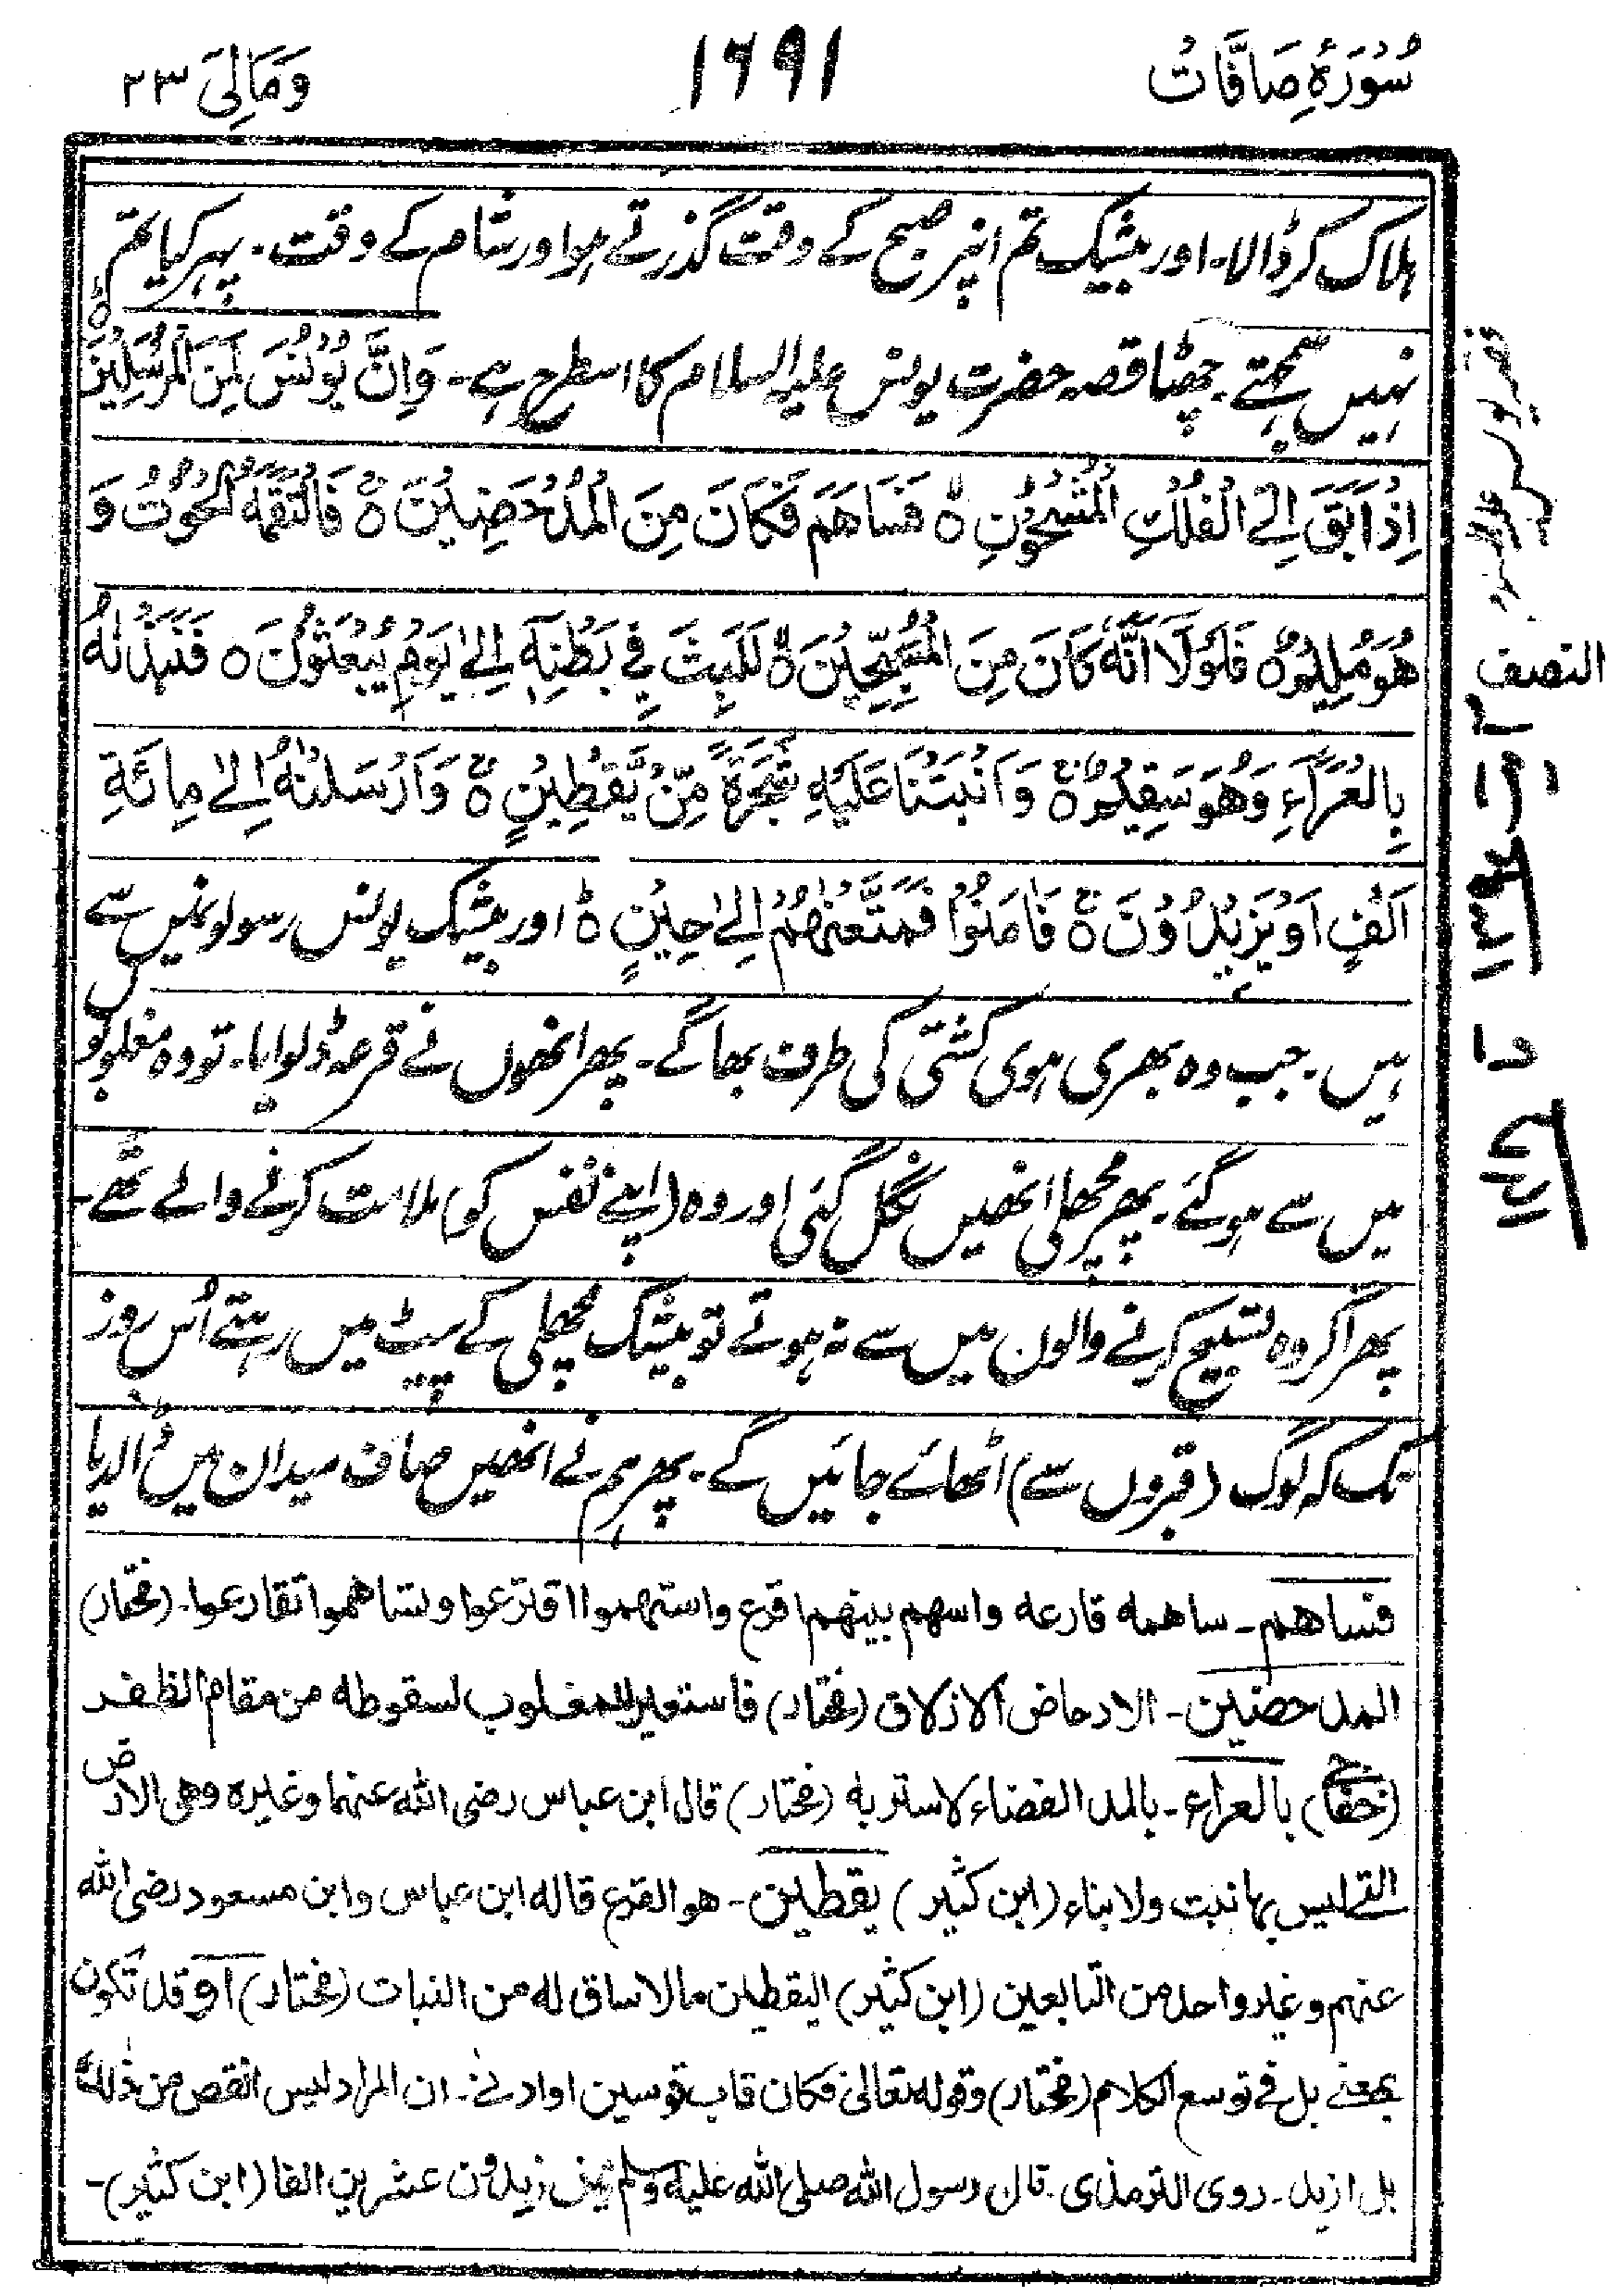 سُوْرَۂِ صَافَّاتْ
۱۶۹۱
وَمَالِیَ ۲۳
ہلاک کر ڈالا۔ اور بیشک تم انپر صبح کے وقت گذرتے ہو اور شام کے وقت۔ پہر کیا تم
نہیں سمجھتے۔ چھٹا قصہ حضرت یونس علیہ السلام کا اسطرح ہے۔ وَاِنَّ یُوْنُسَ لَمِنَ الْمُرْسَلِیْنَ ۝
اِذْ اَبَقَ اِلَی الْفُلْكِ الْمَشْحُوْنِ ۝ فَسَاهَمَ فَكَانَ مِنَ الْمُدْحَضِیْنَ ۝ فَالْتَقَمَهُ الْحُوْتُ وَ
هُوَ مُلِیْمٌ ۝ فَلَوْلَا اَنَّهٗ كَانَ مِنَ الْمُسَبِّحِیْنَ ۝ لَلَبِثَ فِیْ بَطْنِهٖۤ اِلٰی یَوْمِ یُبْعَثُوْنَ ۝ فَنَبَذْنٰهُ
بِالْعَرَآءِ وَهُوَ سَقِیْمٌ ۝ وَاَنْۢبَتْنَا عَلَیْهِ شَجَرَةً مِّنْ یَّقْطِیْنٍ ۝ وَاَرْسَلْنٰهُ اِلٰی مِائَةِ
اَلْفٍ اَوْ یَزِیْدُوْنَ ۝ فَاٰمَنُوْا فَمَتَّعْنٰهُمْ اِلٰی حِیْنٍ ۝ اور بیشک یونس رسولونمیں سے
ہیں۔ جب وہ بھری ہوی کشتی کی طرف بھاگے۔ پھر انھوں نے قرعہ ڈلوایا۔ تو وہ مغلوبوں
میں سے ہو گئے۔ پھر مچھلی انھیں نگل گئی اور وہ (اپنے نفس کو) ملامت کرنے والے تھے۔
پھر اگر وہ تسبیح کرنے والوں میں سے نہ ہوتے تو بیشک مچھلی کے پیٹ میں رہتے اُس روز
تک کہ لوگ (قبروں سے) اٹھائے جائیں گے۔ پھر ہم نے انھیں صاف میدان میں ڈالدیا
فساهم۔ ساهمه قارعه واسهم بینهم اقرع واستهموا اقترعوا وتساهموا تقارعوا۔ (مختار)
المدحضین۔ الادحاض الازلاق (مختار) فاستعیر للمغلوب لسقوطه من مقام الظفر
(خفاجی) بالعراء۔ بالمد الفضاء لا ستر به (مختار) قال ابن عباس رضی الله عنهما وغیره وهی الارض
التی لیس بها نبت ولا بناء (ابن کثیر) یقطین۔ هو القرع قاله ابن عباس وابن مسعود رضی الله
عنهم وغیر واحد من التابعین (ابن کثیر) الیقطین ما لا ساق له من النبات (مختار) أو قد تکون
بمعنی بل فی توسع الکلام (مختار) وقوله تعالی فکان قاب قوسین او ادنی۔ ان المراد لیس انقص من ذلك
بل ازید۔ روی الترمذی۔ قال رسول الله صلی الله علیه وسلم یزیدون عشرین الفا (ابن کثیر)۔
النصف